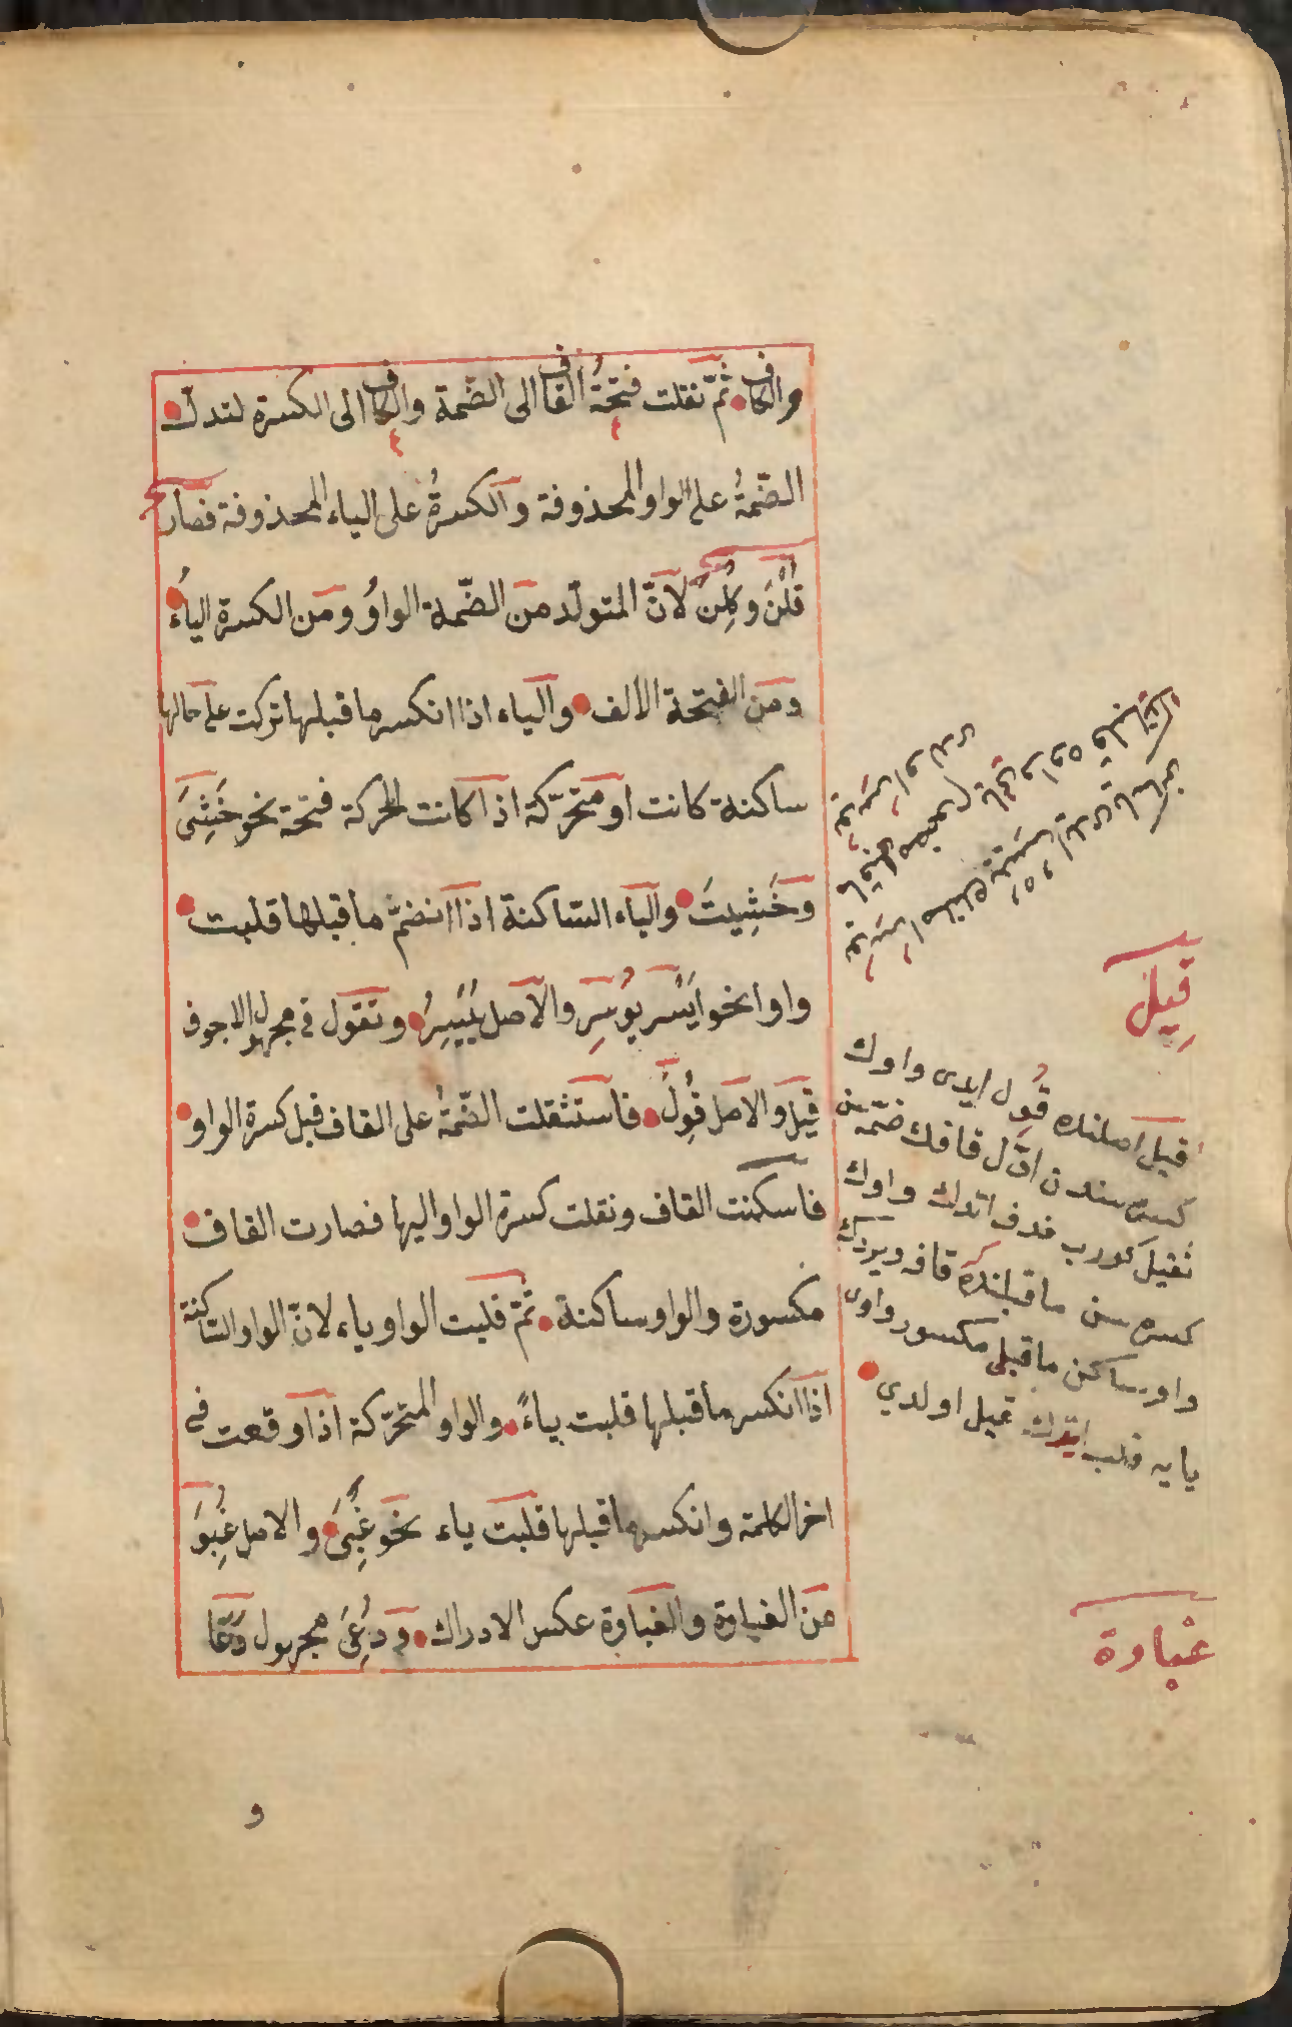 والكاف ثمّ نقلت فتحةُ القاف الى الضّمة والكاف الى الكسرة لتدلّ
الضّمةُ على الواو المحذوفة والكسرةُ على الياء المحذوفة فصار
قُلْنَ وكِلْنَ لانّ المتولّد من الضّمة الواوُ ومن الكسرة الياءُ
ومن الفتحة الالف والياء اذا انكسر ما قبلها تركت على حالها
ساكنة كانت او متحرّكة اذا كانت الحركة فتحة نحو خَشِىَ
وخَشِيتَ والياء الساكنة اذا انضمّ ما قبلها قلبت
واوا نحو اَيْسَر يُوسِر والاصل يُيْسِرُ وتقول فى مجهول الاجوف
قِيلَ والاصل قُوِلَ فاستثقلت الضّمةُ على القاف قبل كسرة الواو
فاسكنت القاف ونقلت كسرة الواو اليها فصارت القاف
مكسورة والواو ساكنة ثمّ قلبت الواو ياء لانّ الواو الساكنة
اذا انكسر ما قبلها قلبت ياءً والواو المتحرّكة اذا وقعت فى
اخر الكلمة وانكسر ما قبلها قلبت ياء نحو غُبِىَ والاصل غُبِوَ
من الغباوة والغباوة عكس الادراك ودُعِىَ مجهول دَعَا
و
قِيلَ
قيل اصلنده قُوِل ايدى واوك
كسره سندن اوّل قافك ضمّه سن
ثقيل كورب حذف اتدك واوك
كسره سن ما قبلنده قافه ويردك
واو ساكن ما قبلى مكسور واوى
يايه قلب ايتدك قيل اولدي
غباوة